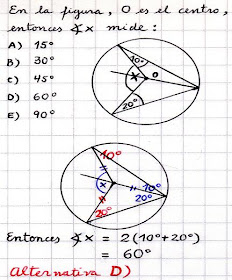 En la figura, O es el centro,
entonces ∡x mide:
A) 15°
B) 30°
C) 45°
D) 60°
E) 90°
10°
x
O
20°
10°
x
10°
20°
20°
Entonces ∡x = 2(10°+20°)
= 60°
Alternativa D)